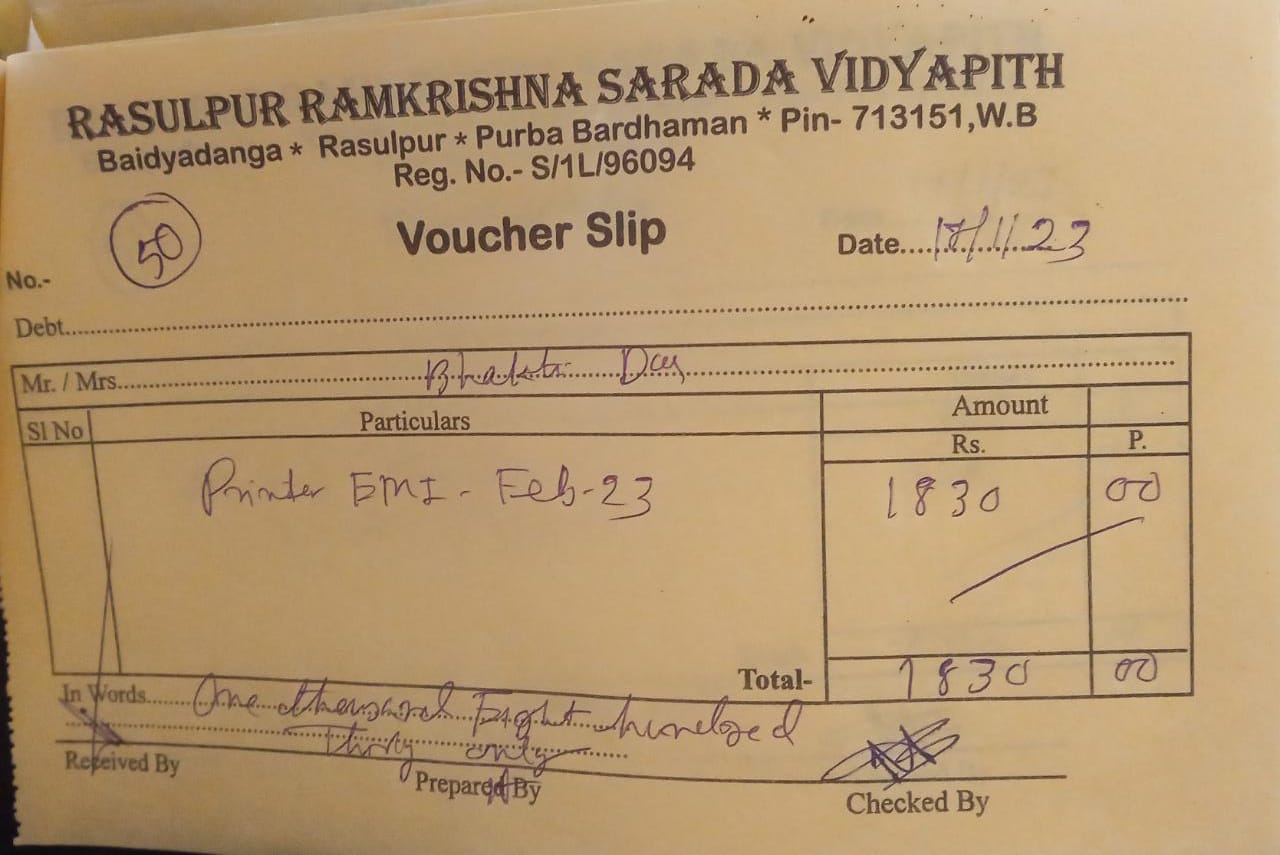 RASULPUR RAMKRISHNA SARADA VIDYAPITH
Baidyadanga * Rasulpur * Purba Bardhaman * Pin- 713151,W.B
Reg. No.- S/1L/96094
No.- 50
Voucher Slip
Date....18/11.23
Debt
Mr. / Mrs. Bhakti Das
Sl No Particulars Amount
Rs. P.
Printer EMI - Feb-23 1830 00
Total- 1830 00
In Words One thousand Eight hundred
Thirty only
Received By Prepared By Checked By